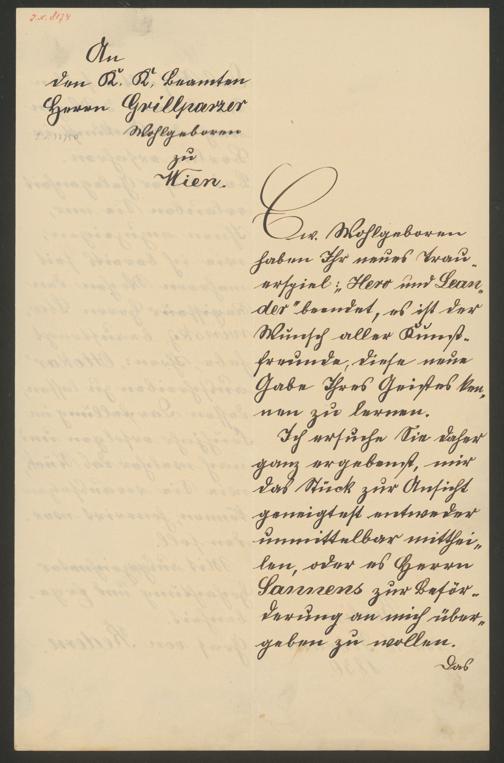 J.N. 8174
An
den K. K. Beamten
Herrn Grillparzer
Wohlgeboren
zu
Wien.
Ew. Wohlgeboren
haben Ihr neues Trau-
erspiel: „Hero und Lean-
der" beendet, es ist der
Wunsch aller Kunst-
freunde, diese neue
Gabe Ihres Geistes ken-
nen zu lernen.
Ich ersuche Sie daher
ganz ergebenst, mir
das Stück zur Ansicht
geneigtest entweder
unmittelbar mitthei-
len, oder es Herrn
Lannens zur Beför-
derung an mich über-
geben zu wollen.
Das